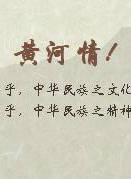 黄河情！
乎，中华民族之文化
乎，中华民族之精神